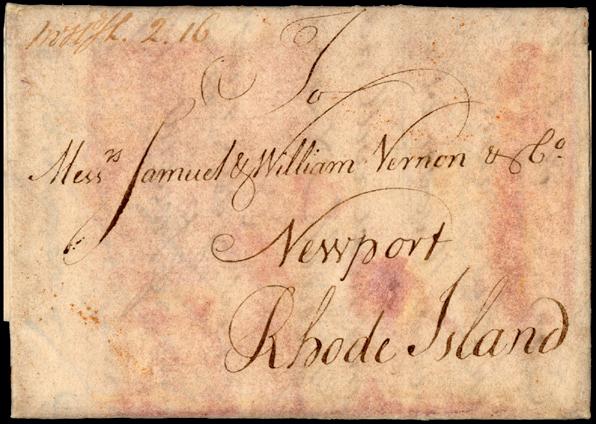 2. 16
To
Mess.rs Samuel & William Vernon & Co.
Newport
Rhode Island